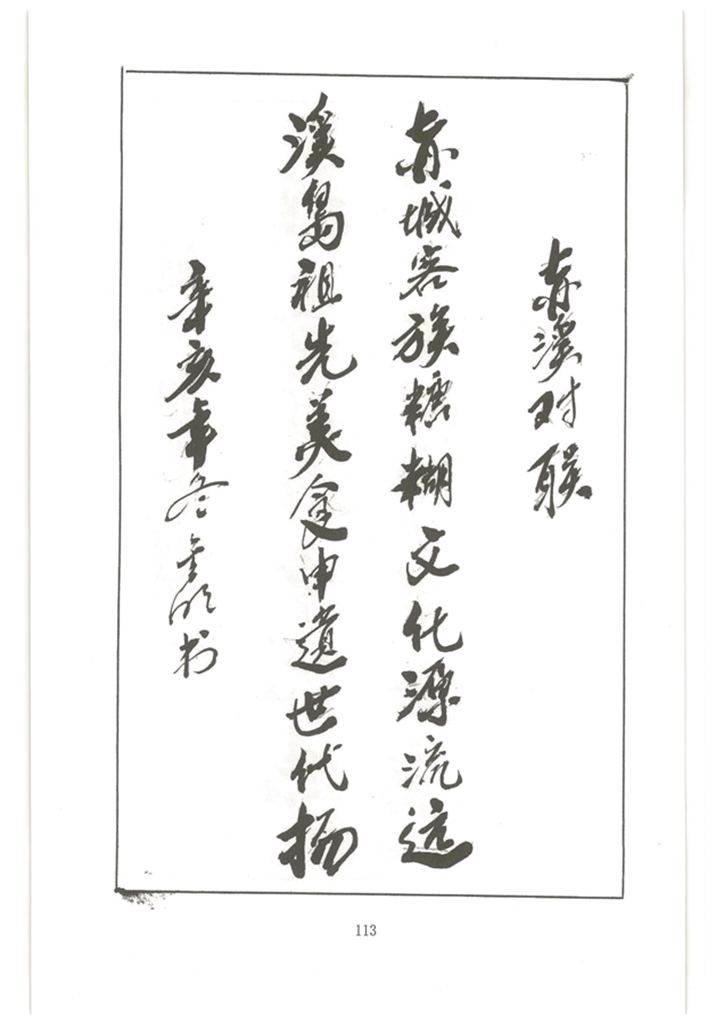 赤溪对联
赤城客族糖糊文化源流远
溪岛祖先美食申遗世代扬
辛亥年冬 书
113